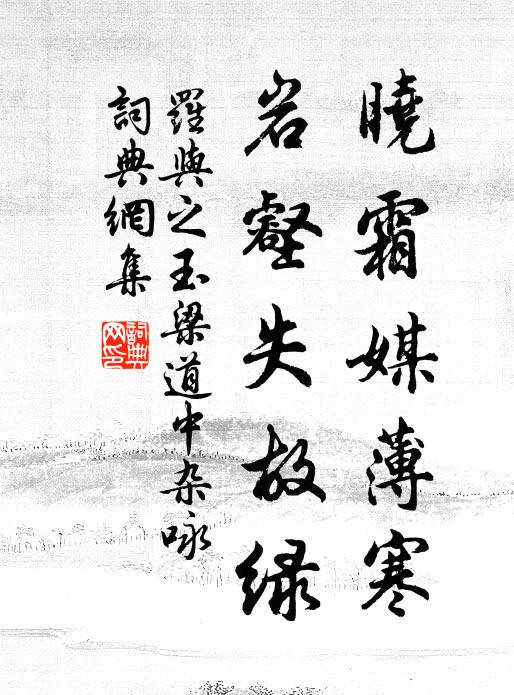 曉霜媒薄寒
岩壑失故緑
羅與之玉梁道中杂咏
詞典網集
詞典
网印